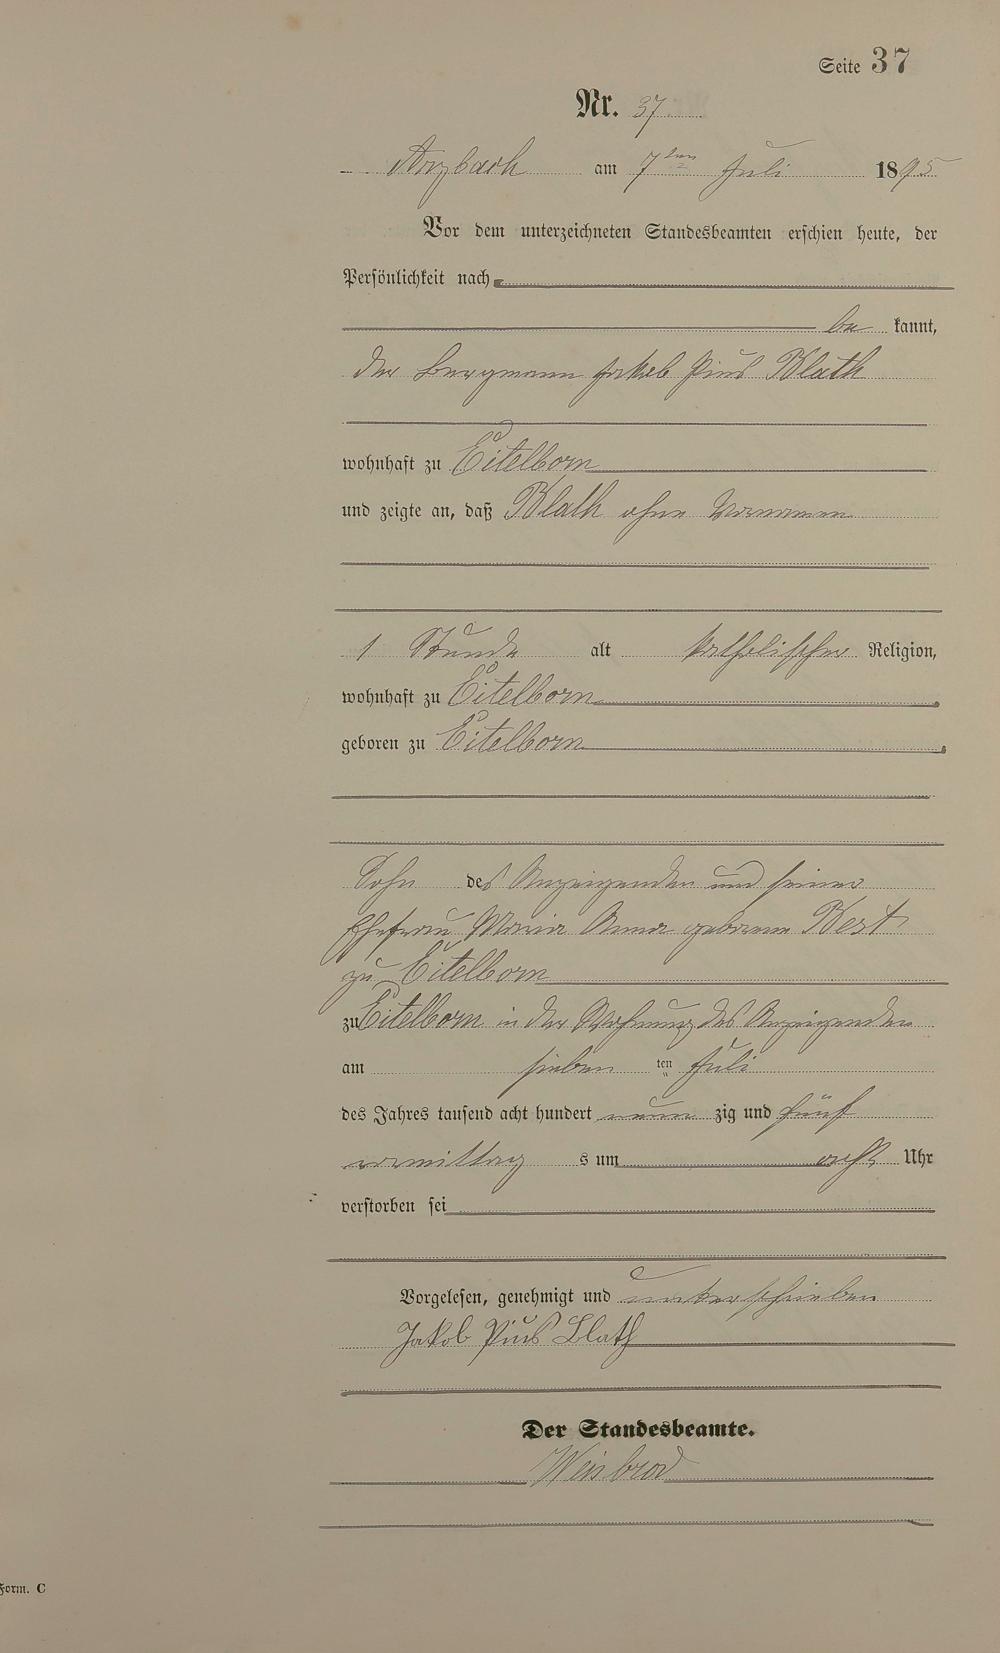 Seite 37
Nr. 37
Arzbach am 7ten Juli 1895
Vor dem unterzeichneten Standesbeamten erschien heute, der
Persönlichkeit nach
be kannt,
der Bergmann Jakob Pius Blath
wohnhaft zu Eitelborn
und zeigte an, daß Blath ohne Vornamen
1 Stunde alt katholischer Religion,
wohnhaft zu Eitelborn
geboren zu Eitelborn
Sohn des Anzeigenden und seiner
Ehefrau Maria Anna geborene Best
zu Eitelborn
zu Eitelborn in der Wohnung des Anzeigenden
am sieben ten Juli
des Jahres tausend acht hundert neun zig und fünf
vormittag s um acht Uhr
verstorben sei
Vorgelesen, genehmigt und unterschrieben
Jakob Pius Blath
Der Standesbeamte.
Weisbrod
Form. C